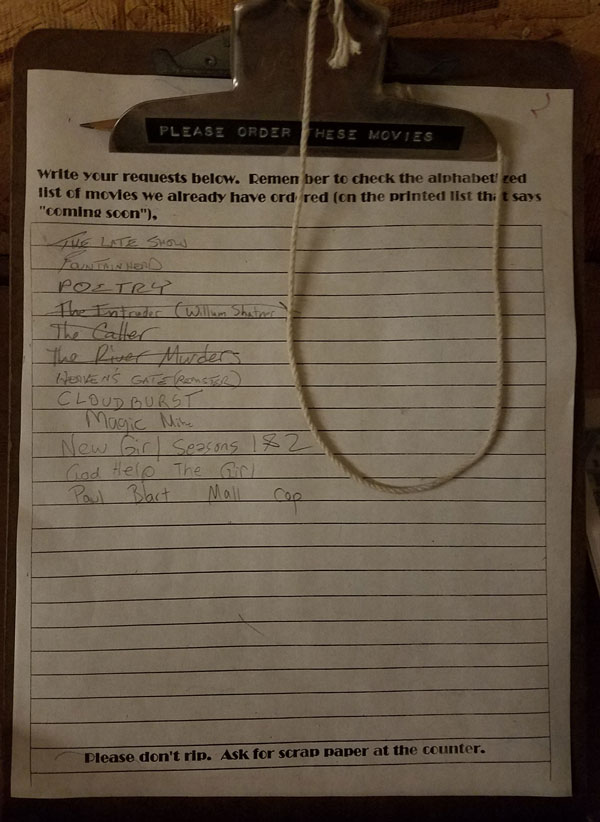 PLEASE ORDER THESE MOVIES
Write your requests below. Remember to check the alphabetized
list of movies we already have ordered (on the printed list that says
"coming soon").
THE LATE SHOW
FOUNTAINHEAD
POETRY
The Intruder (William Shatner)
The Caller
The River Murders
HEAVEN'S GATE (REMASTER)
CLOUDBURST
Magic Mike
New Girl Seasons 1 & 2
God Help The Girl
Paul Blart Mall Cop
Please don't rip. Ask for scrap paper at the counter.